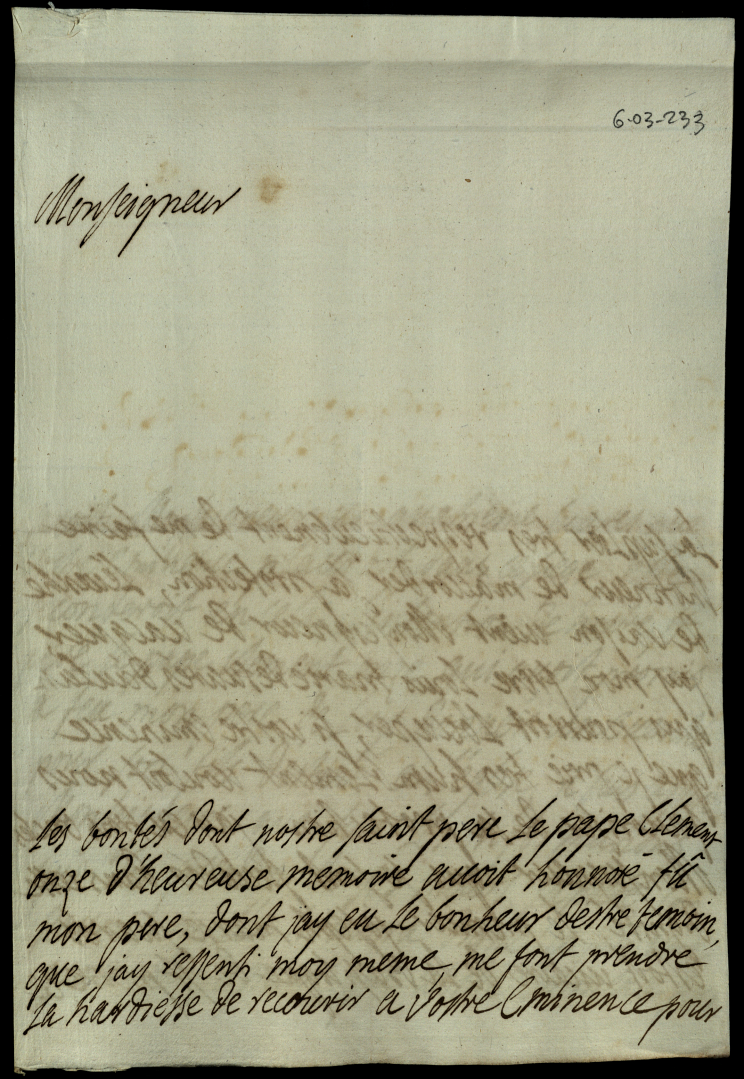 6-03-233
Monseigneur
Les bontés dont nostre saint pere Le pape Clement
onze d'heureuse memoire avoit honnoré fû
mon pere, dont jay eu Le bonheur destre temoin,
que jay ressenti moy meme, me font prendre
La hardiesse de recourir a Vostre Eminence pour